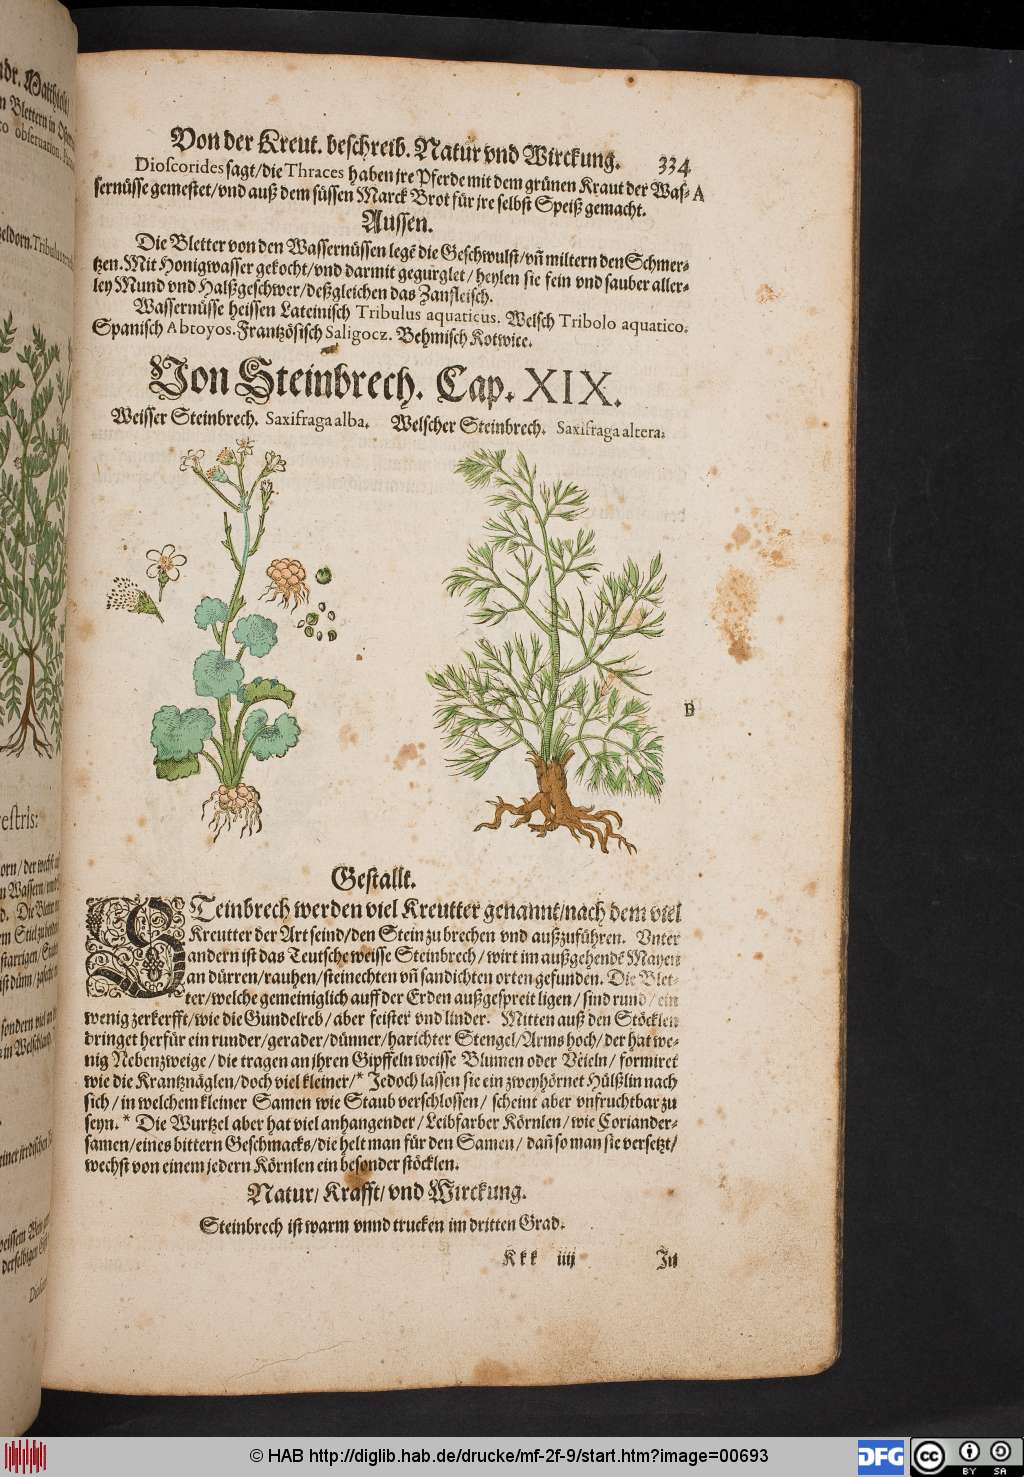 Von der Kreut. beschreib. Natur vnd Wirckung. 334
Dioscorides sagt/die Thraces haben jre Pferde mit dem grünen Kraut der Was- A
sernüsse gemestet/vnd auß dem süssen Marck Brot für jre selbst Speiß gemacht.
Aussen.
Die Bletter von den Wassernüssen legẽ die Geschwulst/vñ miltern den Schmer-
tzen. Mit Honigwasser gekocht/vnd darmit gegurglet/ heylen sie fein vnd sauber aller-
ley Mund vnd Halßgeschwer/deßgleichen das Zanfleisch.
Wassernüsse heissen Lateinisch Tribulus aquaticus. Welsch Tribolo aquatico.
Spanisch Abtoyos. Frantzösisch Saligocz. Behmisch Kotwice.
Von Steinbrech. Cap. XIX.
Weisser Steinbrech. Saxifraga alba. Welscher Steinbrech. Saxifraga altera.
B
Gestallt.
STeinbrech werden viel Kreutter genannt/nach dem viel
Kreutter der Art seind/den Stein zu brechen vnd außzuführen. Vnter
andern ist das Teutsche weisse Steinbrech/ wirt im außgehendẽ Mayen
an dürren/rauhen/steinechten vñ sandichten orten gefunden. Die Blet-
ter/welche gemeiniglich auff der Erden außgespreit ligen/ sind rund/ ein
wenig zerkerfft/wie die Gundelreb/ aber feister vnd linder. Mitten auß den Stöcklen
dringet herfür ein runder/gerader/dünner/harichter Stengel/Arms hoch/der hat we-
nig Nebenzweige/ die tragen an jhren Gipffeln weisse Blumen oder Veieln/ formiret
wie die Krantznäglen/doch viel kleiner/* Jedoch lassen sie ein zweyhörnet Hülßlin nach
sich/ in welchem kleiner Samen wie Staub verschlossen/ scheint aber vnfruchtbar zu
seyn.* Die Wurtzel aber hat viel anhangender/Leibfarber Körnlen/ wie Coriander-
samen/eines bittern Geschmacks/die helt man für den Samen/ dañ so man sie versetzt/
wechst von einem jedern Körnlen ein besonder stöcklen.
Natur/ Krafft/ vnd Wirckung.
Steinbrech ist warm vnnd trucken im dritten Grad.
Kkk iiij Jn
© HAB http://diglib.hab.de/drucke/mf-2f-9/start.htm?image=00693
DFG
cc BY SA